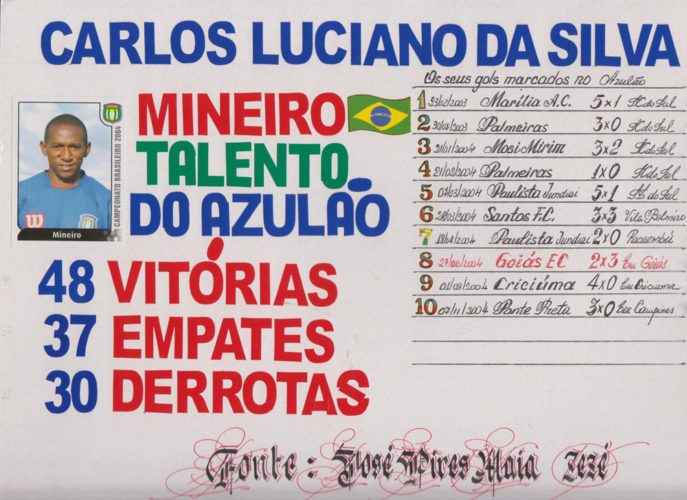 CARLOS LUCIANO DA SILVA
MINEIRO
TALENTO
DO AZULÃO
CAMPEONATO BRASILEIRO 2004
W
Mineiro
48 VITÓRIAS
37 EMPATES
30 DERROTAS
Os seus gols marcados no Azulão
1 Marília A.C. 5x1 A.do Sul
2 Palmeiras 3x0 A.do Sul
3 Mogi-Mirim 3x2 A.do Sul
4 21/02/2004 Palmeiras 1x0 A.do Sul
5 07/03/2004 Paulista Jundiai 5x1 A.do Sul
6 28/03/2004 Santos F.C. 3x3 Vila Belmiro
7 18/04/2004 Paulista Jundiai 2x0 Pacaembú
8 27/06/2004 GOIÁS EC 2x3 Em Goiás
9 01/09/2004 Criciúma 4x0 Em Criciuma
10 07/11/2004 Ponte Preta 3x0 Em Campinas
Fonte: José Pires Maia Zezé